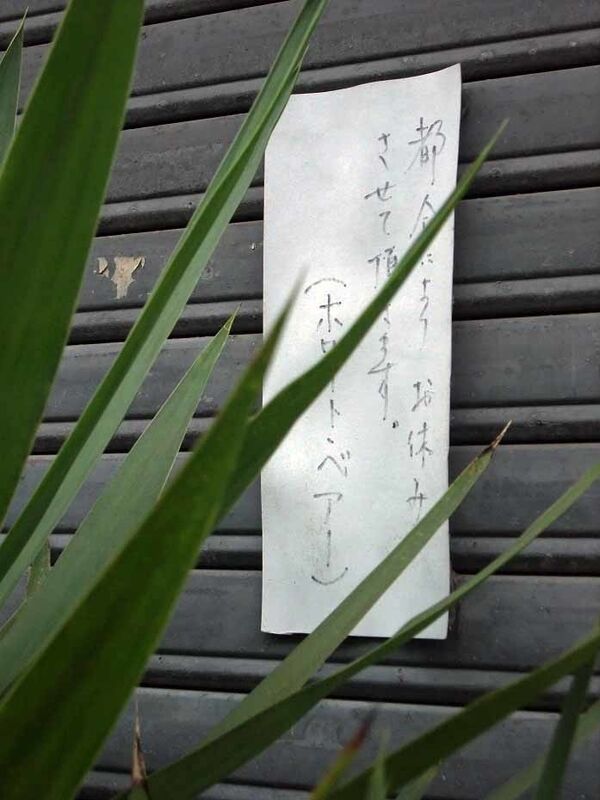 都合により お休み
させて頂きます。
(ホワイト・ベアー)